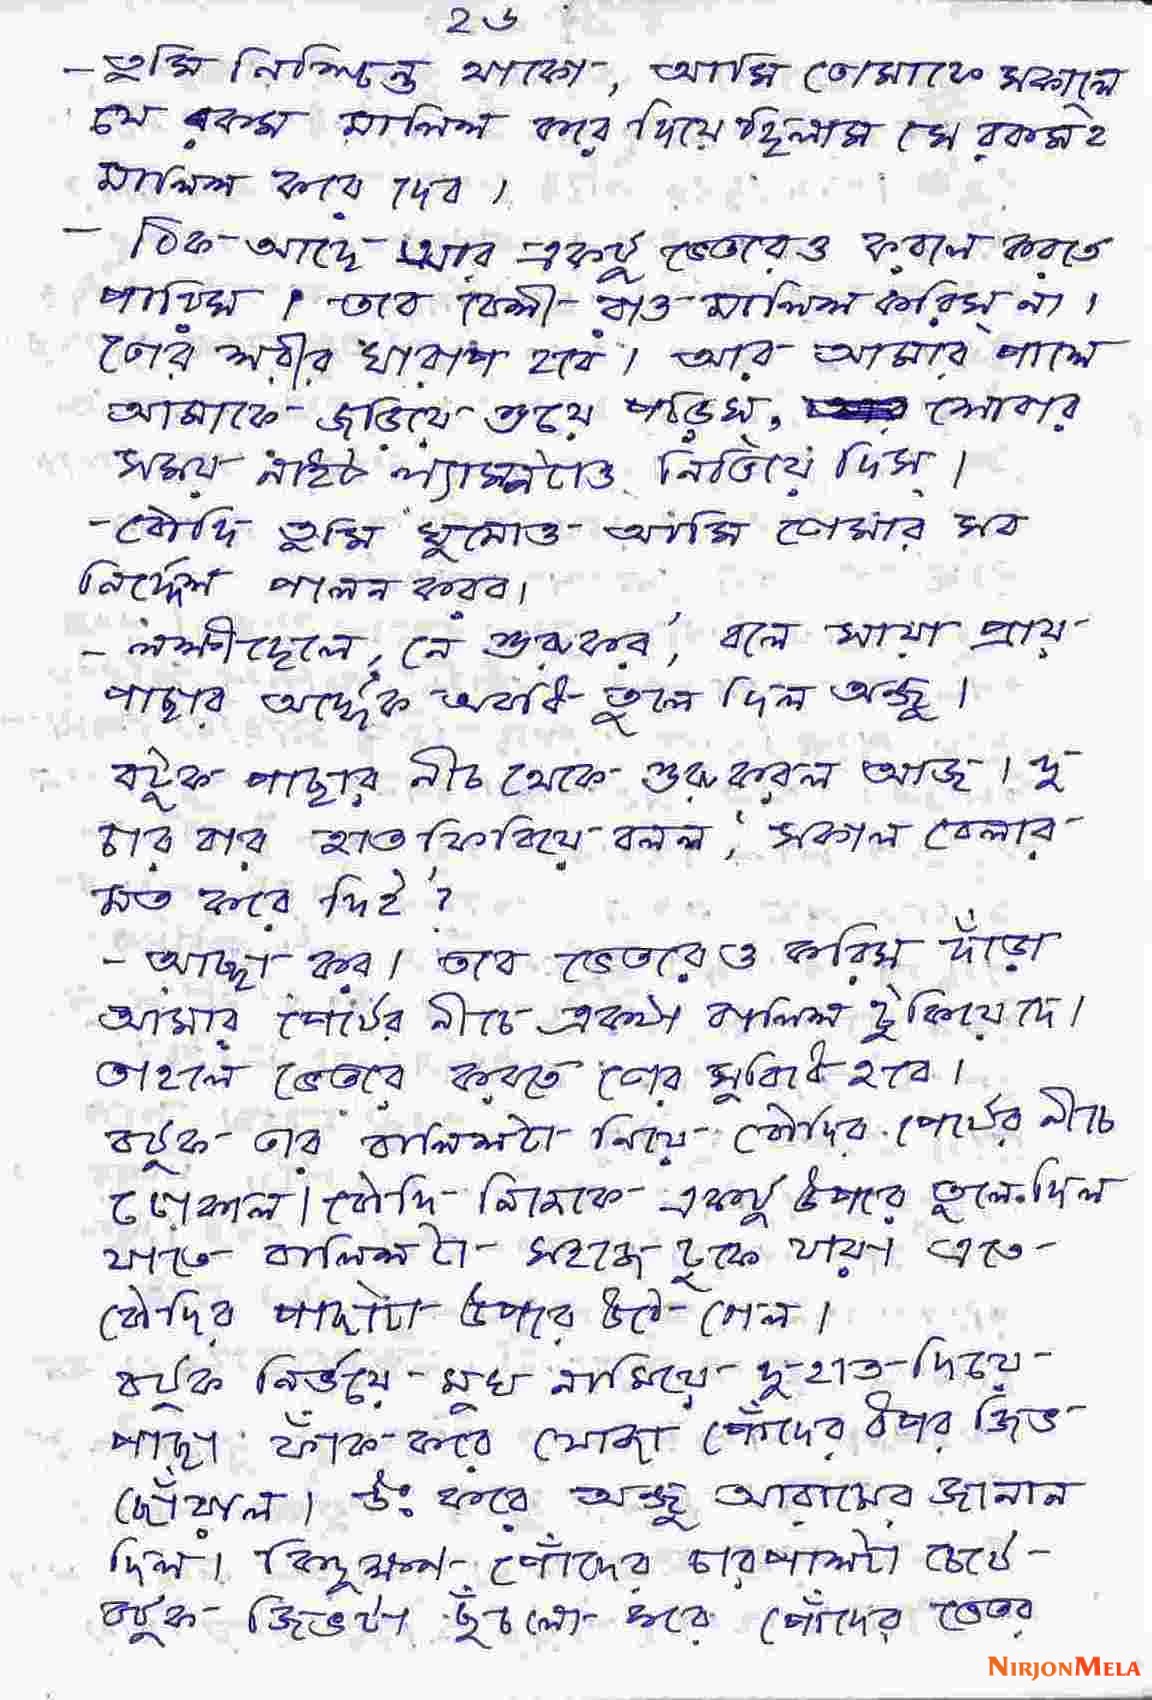 ২৬
- তুমি নিশ্চিন্ত থাকো, আমি তোমাকে সকালে
যে রকম মালিশ করে দিয়ে ছিলাম সে রকমই
মালিশ করে দেব।
- ঠিক আছে আর একটু ভেতরেও করলে করতে
পারিস। তবে বেশী রাত মালিশ করিস না।
তোর শরীর খারাপ হবে। আর আমার পাশে
আমাকে জড়িয়ে শুয়ে পড়িস, শোবার
সময় নাইট ল্যাম্পটাও নিভিয়ে দিস।
- বৌদি তুমি ঘুমোও আমি তোমার সব
নির্দ্দেশ পালন করব।
- লক্ষীছেলে, নে শুরু কর', বলে সায়া প্রায়
পাছার অর্দ্ধেক অবধি তুলে দিল অন্জু।
বটুক পাছার নীচ থেকে শুরু করল আজ। দু
চার বার হাত ফিরিয়ে বলল, 'সকাল বেলার
মত করে দিই'?
- আচ্ছা কর। তবে ভেতরেও করিস দাঁড়া
আমার পেটের নীচে একটা বালিশ ঢুকিয়ে দে।
তাহলে ভেতরে করতে তোর সুবিধে হবে।
বটুক তার বালিশটা নিয়ে বৌদির পেটের নীচে
ঢোকাল। বৌদি নিজেকে একটু উপরে তুলে দিল
যাতে বালিশটা সহজে ঢুকে যায়। এতে
বৌদির পাছাটা উপরে উঠে গেল।
বটুক নির্ভয়ে মুখ নামিয়ে দু হাত দিয়ে
পাছা ফাঁক করে সোজা পোঁদের উপর জিভ
ছোঁয়াল। উঃ করে অন্জু আরামের জানান
দিল। কিছুক্ষণ পোঁদের চারপাশটা চেটে
বটুক জিভটা ছুঁচলো করে পোঁদের ভেতর
NIRJONMELA